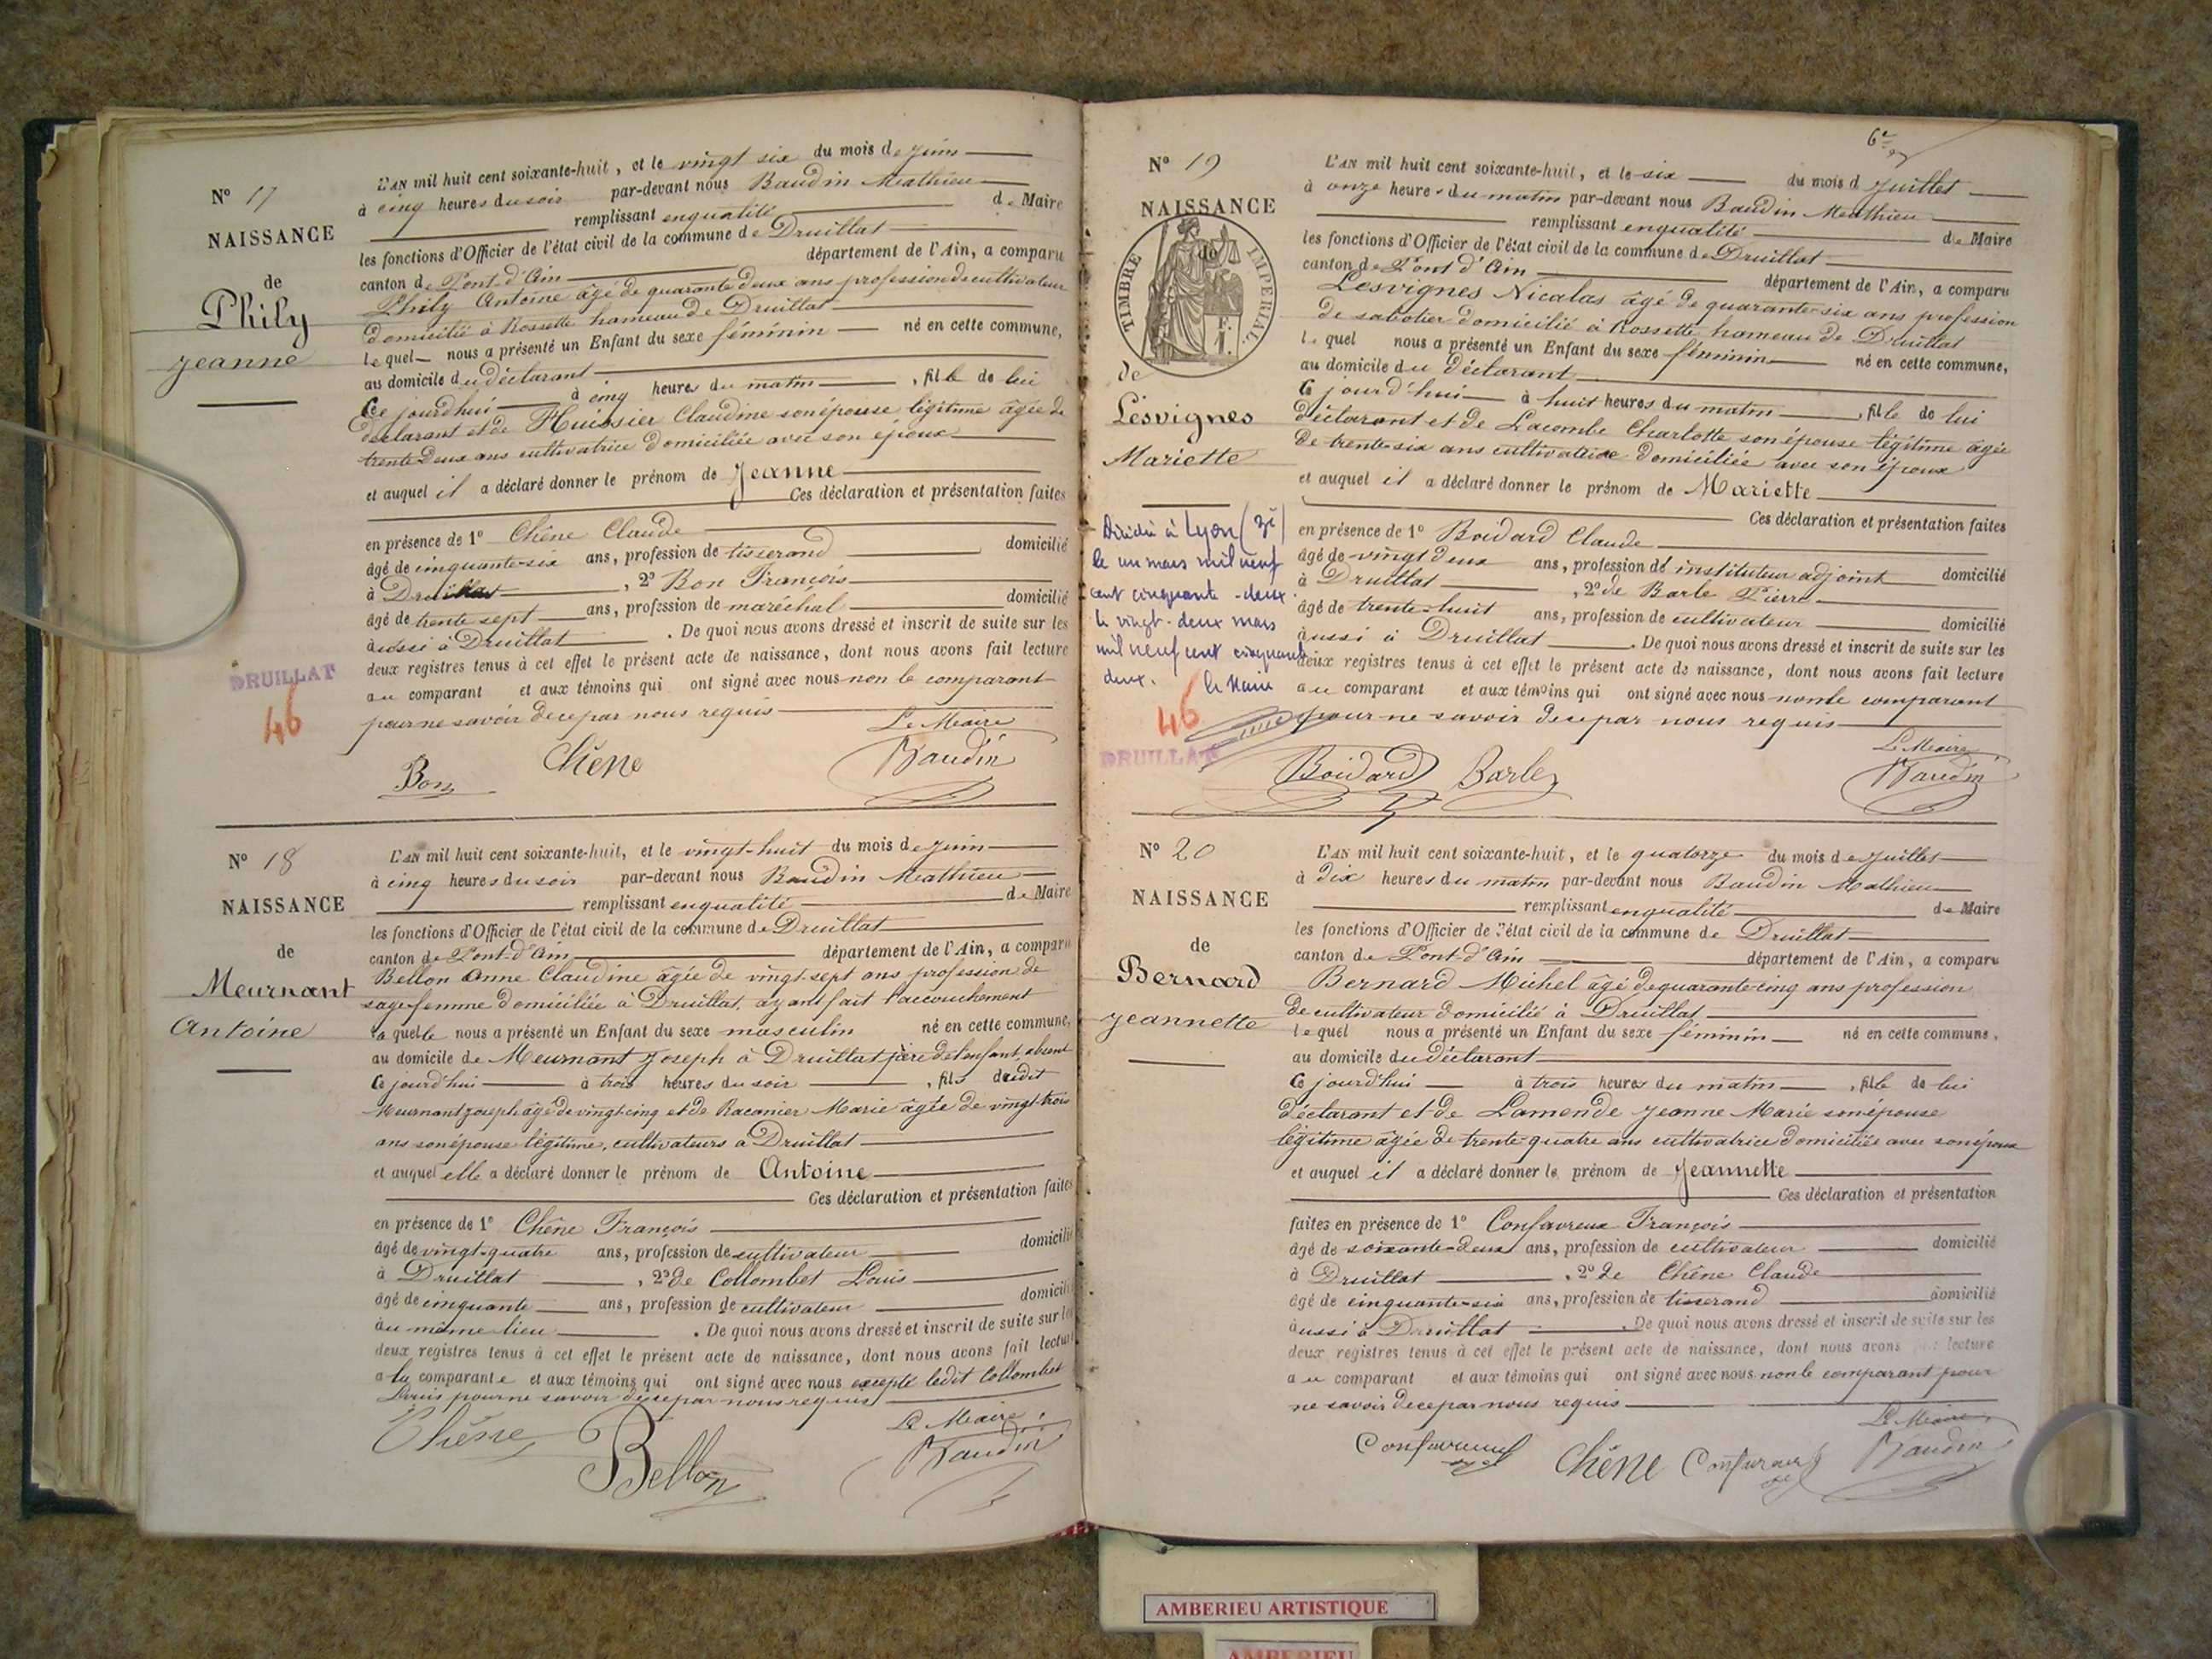 N° 17
NAISSANCE
de
Phily
Jeanne
L'AN mil huit cent soixante-huit, et le vingt six du mois de Juin
à cinq heures du soir par-devant nous Baudin Mathieu
remplissant en qualité de Maire
les fonctions d'Officier de l'état civil de la commune de Druillat
canton de Pont-d'Ain département de l'Ain, a comparu
Phily Antoine âgé de quarante deux ans profession de cultivateur
domicilié à Rossette hameau de Druillat
lequel nous a présenté un Enfant du sexe féminin né en cette commune,
au domicile du déclarant
Ce jourd'hui à cinq heures du matin, fille de lui
déclarant et de Huissier Claudine son épouse légitime âgée de
trente deux ans cultivatrice domiciliée avec son époux
et auquel il a déclaré donner le prénom de Jeanne
Ces déclaration et présentation faites
en présence de 1° Chêne Claude
âgé de cinquante-six ans, profession de tisserand domicilié
à Druillat, 2° Bon François
âgé de trente sept ans, profession de maréchal domicilié
aussi à Druillat. De quoi nous avons dressé et inscrit de suite sur les
deux registres tenus à cet effet le présent acte de naissance, dont nous avons fait lecture
au comparant et aux témoins qui ont signé avec nous non le comparant
pour ne savoir de ce par nous requis
Le Maire
Bon Chêne Baudin
DRUILLAT
46
N° 18
NAISSANCE
de
Meurnant
Antoine
L'AN mil huit cent soixante-huit, et le vingt-huit du mois de Juin
à cinq heures du soir par-devant nous Baudin Mathieu
remplissant en qualité de Maire
les fonctions d'Officier de l'état civil de la commune de Druillat
canton de Pont-d'Ain département de l'Ain, a comparu
Bellon Anne Claudine âgée de vingt-sept ans profession de
sage-femme domiciliée à Druillat, ayant fait l'accouchement
laquelle nous a présenté un Enfant du sexe masculin né en cette commune,
au domicile de Meurnant Joseph à Druillat père de l'enfant, absent
Ce jourd'hui à trois heures du soir, fils dudit
Meurnant Joseph âgé de vingt cinq et de Racamier Marie âgée de vingt-trois
ans son épouse légitime, cultivateurs à Druillat
et auquel elle a déclaré donner le prénom de Antoine
Ces déclaration et présentation faites
en présence de 1° Chêne François
âgé de vingt-quatre ans, profession de cultivateur domicilié
à Druillat, 2° de Collombet Louis
âgé de cinquante ans, profession de cultivateur domicilié
au même lieu. De quoi nous avons dressé et inscrit de suite sur les
deux registres tenus à cet effet le présent acte de naissance, dont nous avons fait lecture
a la comparante et aux témoins qui ont signé avec nous excepté ledit Collombet
Louis pour ne savoir de ce par nous requis
Le Maire
Chêne Bellon Baudin
6e
N° 19
NAISSANCE
TIMBRE IMPERIAL
de
1 F.
de
Lesvignes
Mariette
L'AN mil huit cent soixante-huit, et le six du mois d Juillet
à onze heures du matin par-devant nous Baudin Mathieu
remplissant en qualité de Maire
les fonctions d'Officier de l'état civil de la commune de Druillat
canton de Pont d'Ain département de l'Ain, a comparu
Lesvignes Nicolas âgé de quarante-six ans profession
de sabotier domicilié à Rossette hameau de Druillat
lequel nous a présenté un Enfant du sexe féminin né en cette commune,
au domicile du déclarant
Ce jourd'hui à huit heures du matin, fille de lui
déclarant et de Lacombe Charlotte son épouse légitime âgée
de trente six ans cultivatrice domiciliée avec son époux
et auquel il a déclaré donner le prénom de Mariette
Ces déclaration et présentation faites
en présence de 1° Boidard Claude
âgé de vingt deux ans, profession de instituteur adjoint domicilié
à Druillat, 2° de Barle Pierre
âgé de trente-huit ans, profession de cultivateur domicilié
aussi à Druillat. De quoi nous avons dressé et inscrit de suite sur les
deux registres tenus à cet effet le présent acte de naissance, dont nous avons fait lecture
au comparant et aux témoins qui ont signé avec nous non le comparant
pour ne savoir de ce par nous requis
Le Maire
Boidard Barle Baudin
Décédée à Lyon (3e)
le un mars mil neuf
cent cinquante-deux.
le vingt-deux mars
mil neuf cent cinquante
deux. le Maire
46
DRUILLAT
N° 20
NAISSANCE
de
Bernard
Jeannette
L'AN mil huit cent soixante-huit, et le quatorze du mois de Juillet
à dix heures du matin par-devant nous Baudin Mathieu
remplissant en qualité de Maire
les fonctions d'Officier de l'état civil de la commune de Druillat
canton de Pont-d'Ain département de l'Ain, a comparu
Bernard Michel âgé de quarante-cinq ans profession
de cultivateur domicilié à Druillat
lequel nous a présenté un Enfant du sexe féminin né en cette commune,
au domicile du déclarant
Ce jourd'hui à trois heures du matin, fille de lui
déclarant et de Lamende Jeanne Marie son épouse
légitime âgée de trente-quatre ans cultivatrice domiciliée avec son époux
et auquel il a déclaré donner le prénom de Jeannette
Ces déclaration et présentation
faites en présence de 1° Confavreux François
âgé de soixante-deux ans, profession de cultivateur domicilié
à Druillat, 2° de Chêne Claude
âgé de cinquante-six ans, profession de tisserand domicilié
aussi à Druillat. De quoi nous avons dressé et inscrit de suite sur les
deux registres tenus à cet effet le présent acte de naissance, dont nous avons lecture
au comparant et aux témoins qui ont signé avec nous non le comparant pour
ne savoir de ce par nous requis
Le Maire
Confavreux Chêne Baudin
AMBERIEU ARTISTIQUE
AMBERIEU